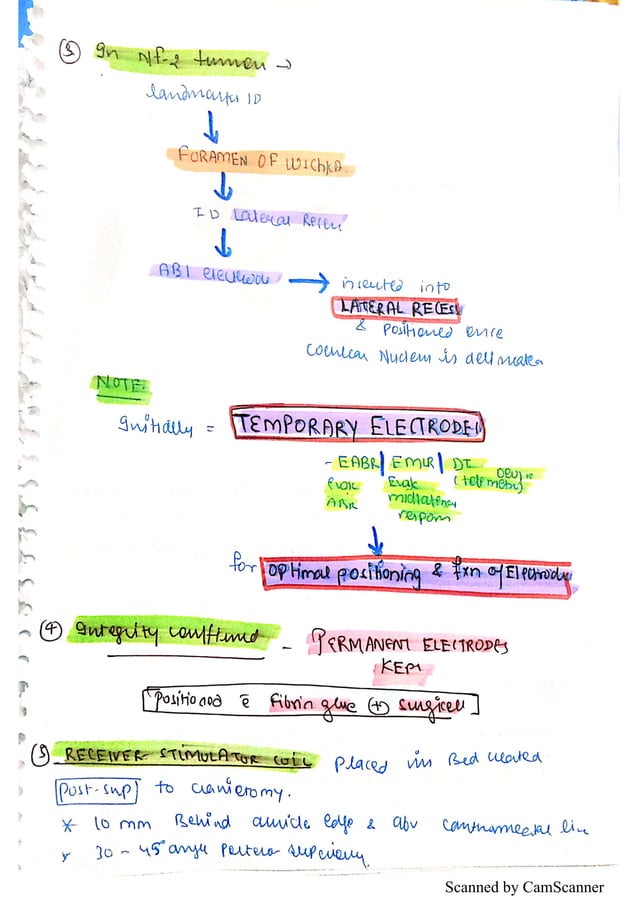 ③ In NF-2 tumour →
landmarks ID
↓
FORAMEN OF
↓
ID Lateral Recess
↓
ABI electrode → inserted into
LATERAL RECESS
& positioned once
Cochlear Nucleus is
NOTE:
Initially = TEMPORARY ELECTRODES
- EABR | EMLR | DT
Evok Evok Device
ABR midlatency (telemetry)
respons
↓
for optimal positioning & fxn of Electrode
④ Integrity confirmed - PERMANENT ELECTRODES
KEPT
Positioned c̄ Fibrin glue ⊕ Surgicell
⑤ RECEIVER STIMULATOR COIL placed in Bed created
Post-sup to craniotomy.
* 10 mm Behind auricle edge & abv canthomeatal line
* 30 - 45° angle Posterosuperiorly
Scanned by CamScanner